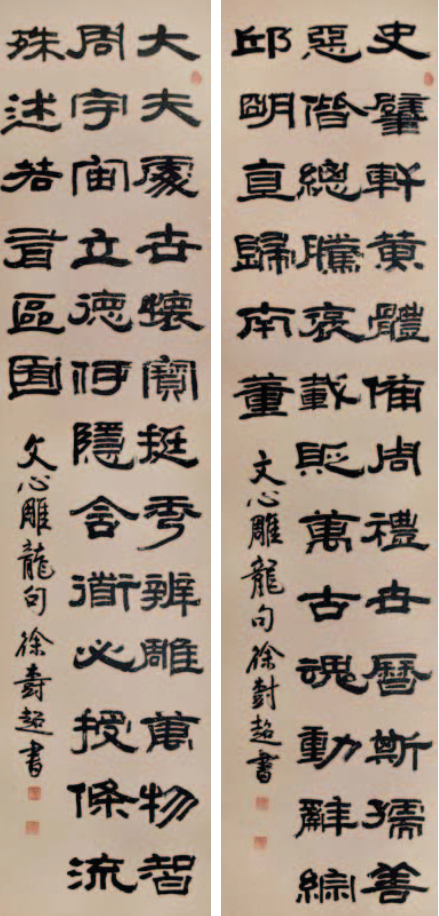 史肇軒黄體備周禮世曆斯孺善
惡偕總騰褒載貶萬古魂動辭綜
邱明直歸南董
文心雕龍句 徐壽超書
大夫處世懷寶挺秀辨雕萬物智
周宇宙立德何隱含衜必授條流
殊述若有區囿
文心雕龍句 徐壽超書